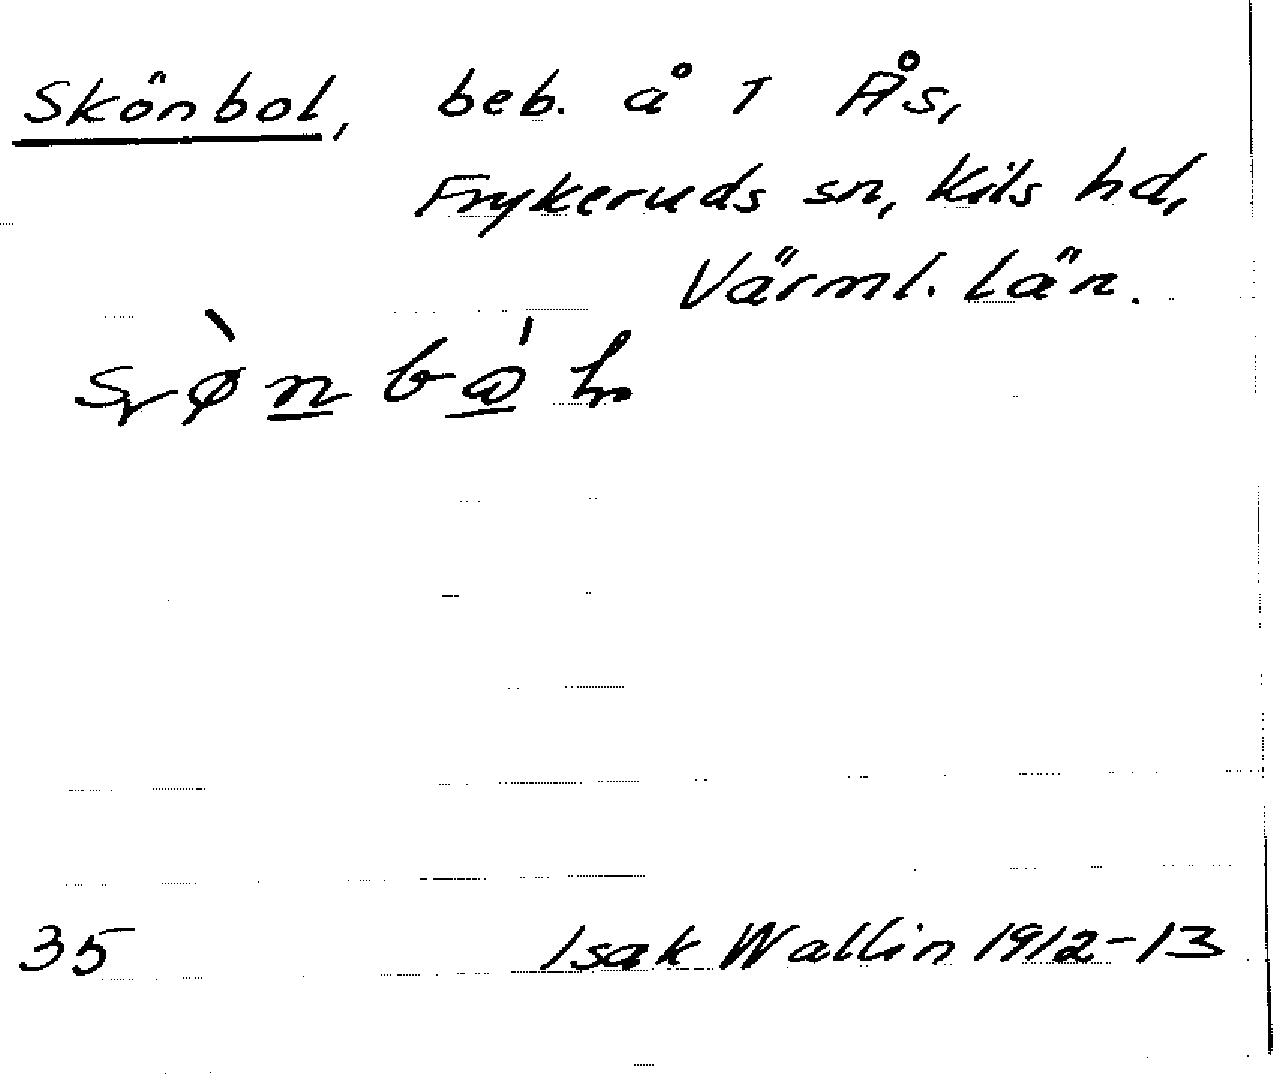 Skönbol, beb. å 1 Ås,
Frykeruds sn, Kils hd,
Värml. län.
35 Isak Wallin 1912-13